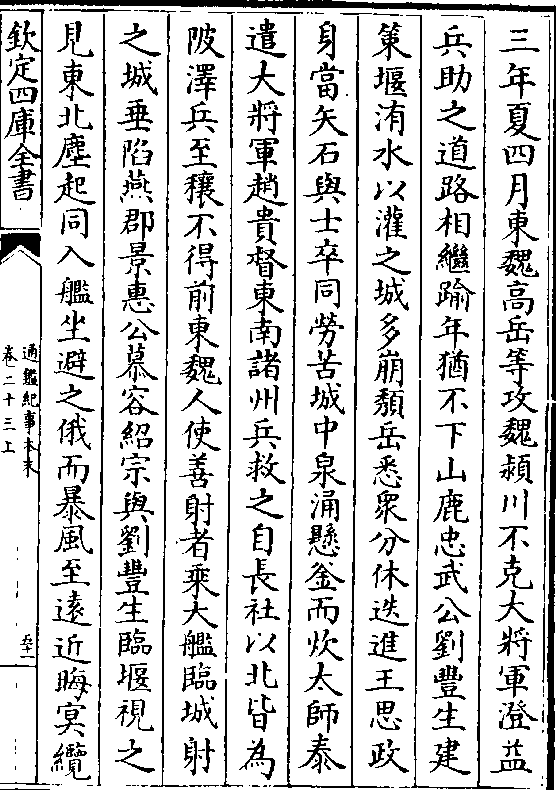 三年夏四月東魏高岳等攻魏潁川不克大將軍澄益
兵助之道路相繼踰年猶不下山鹿忠武公劉豐生建
策堰洧水以灌之城多崩頹岳悉衆分休迭進王思政
身當矢石與士卒同勞苦城中泉涌懸釜而炊太師泰
遣大將軍趙貴督東南諸州兵救之自長社以北皆為
陂澤兵至穰不得前東魏人使善射者乘大艦臨城射
之城垂陷燕郡景惠公慕容紹宗與劉豐生臨堰視之
見東北塵起同入艦坐避之俄而暴風至遠近晦冥纜
欽定四庫全書
通鑑紀事本末
卷二十三上